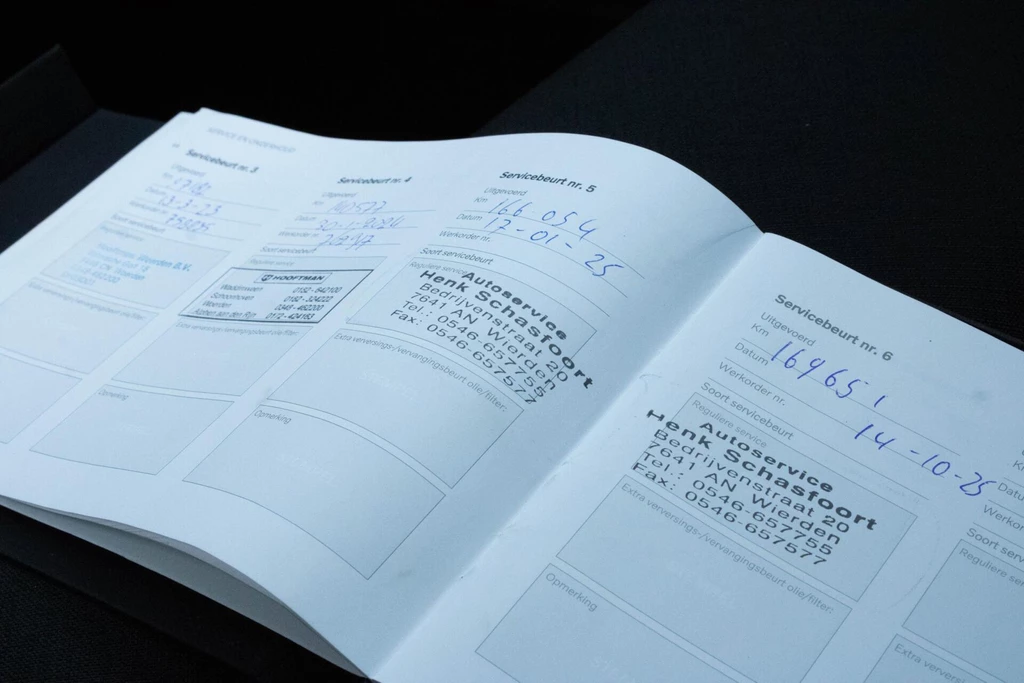 SERVICE EN ONDERHOUD
Servicebeurt nr. 3
Uitgevoerd
Km
Datum 13-3-23
Werkorder nr. 75805
Soort servicebeurt
Woerden B.V.
Extra verversings-/vervangingsbeurt olie/filter:
Servicebeurt nr. 4
Uitgevoerd
Km
Datum
Werkorder nr.
Soort servicebeurt
Reguliere service
HOOFTMAN
Waddinxveen 0182-642100
Schoonhoven 0182-324222
Woerden 0348-462200
Alphen aan den Rijn 0172-424163
Extra verversings-/vervangingsbeurt olie/filter:
Opmerking
Servicebeurt nr. 5
Uitgevoerd
Km 166 054
Datum 17-01-25
Werkorder nr.
Soort servicebeurt
Reguliere service
Autoservice
Henk Schasfoort
Bedrijvenstraat 20
7641 AN Wierden
Tel.: 0546-657755
Fax: 0546-657577
Extra verversings-/vervangingsbeurt olie/filter:
Opmerking
Servicebeurt nr. 6
Uitgevoerd
Km 169651
Datum 14-10-25
Werkorder nr.
Soort servicebeurt
Reguliere service
Autoservice
Henk Schasfoort
Bedrijvenstraat 20
7641 AN Wierden
Tel.: 0546-657755
Fax: 0546-657577
Extra verversings-/vervangingsbeurt olie/filter:
Opmerking
Km
Datu
Werko
Soort serv
Reguliere
Extra verversi